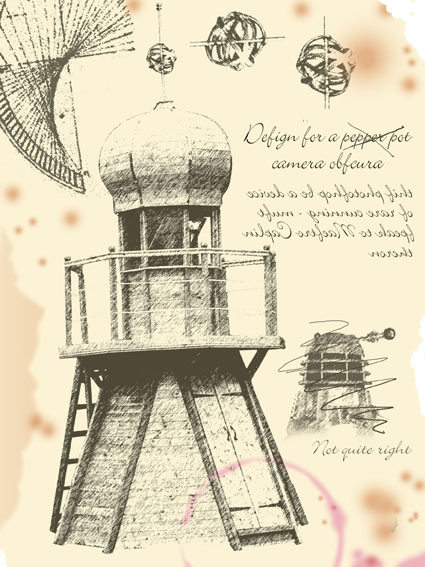 Defign for a pepper pot
camera obfcura
thif photofhop be a device
of rare cunning - muft
fpeak to Maeftro Caplin
theron
Not quite right